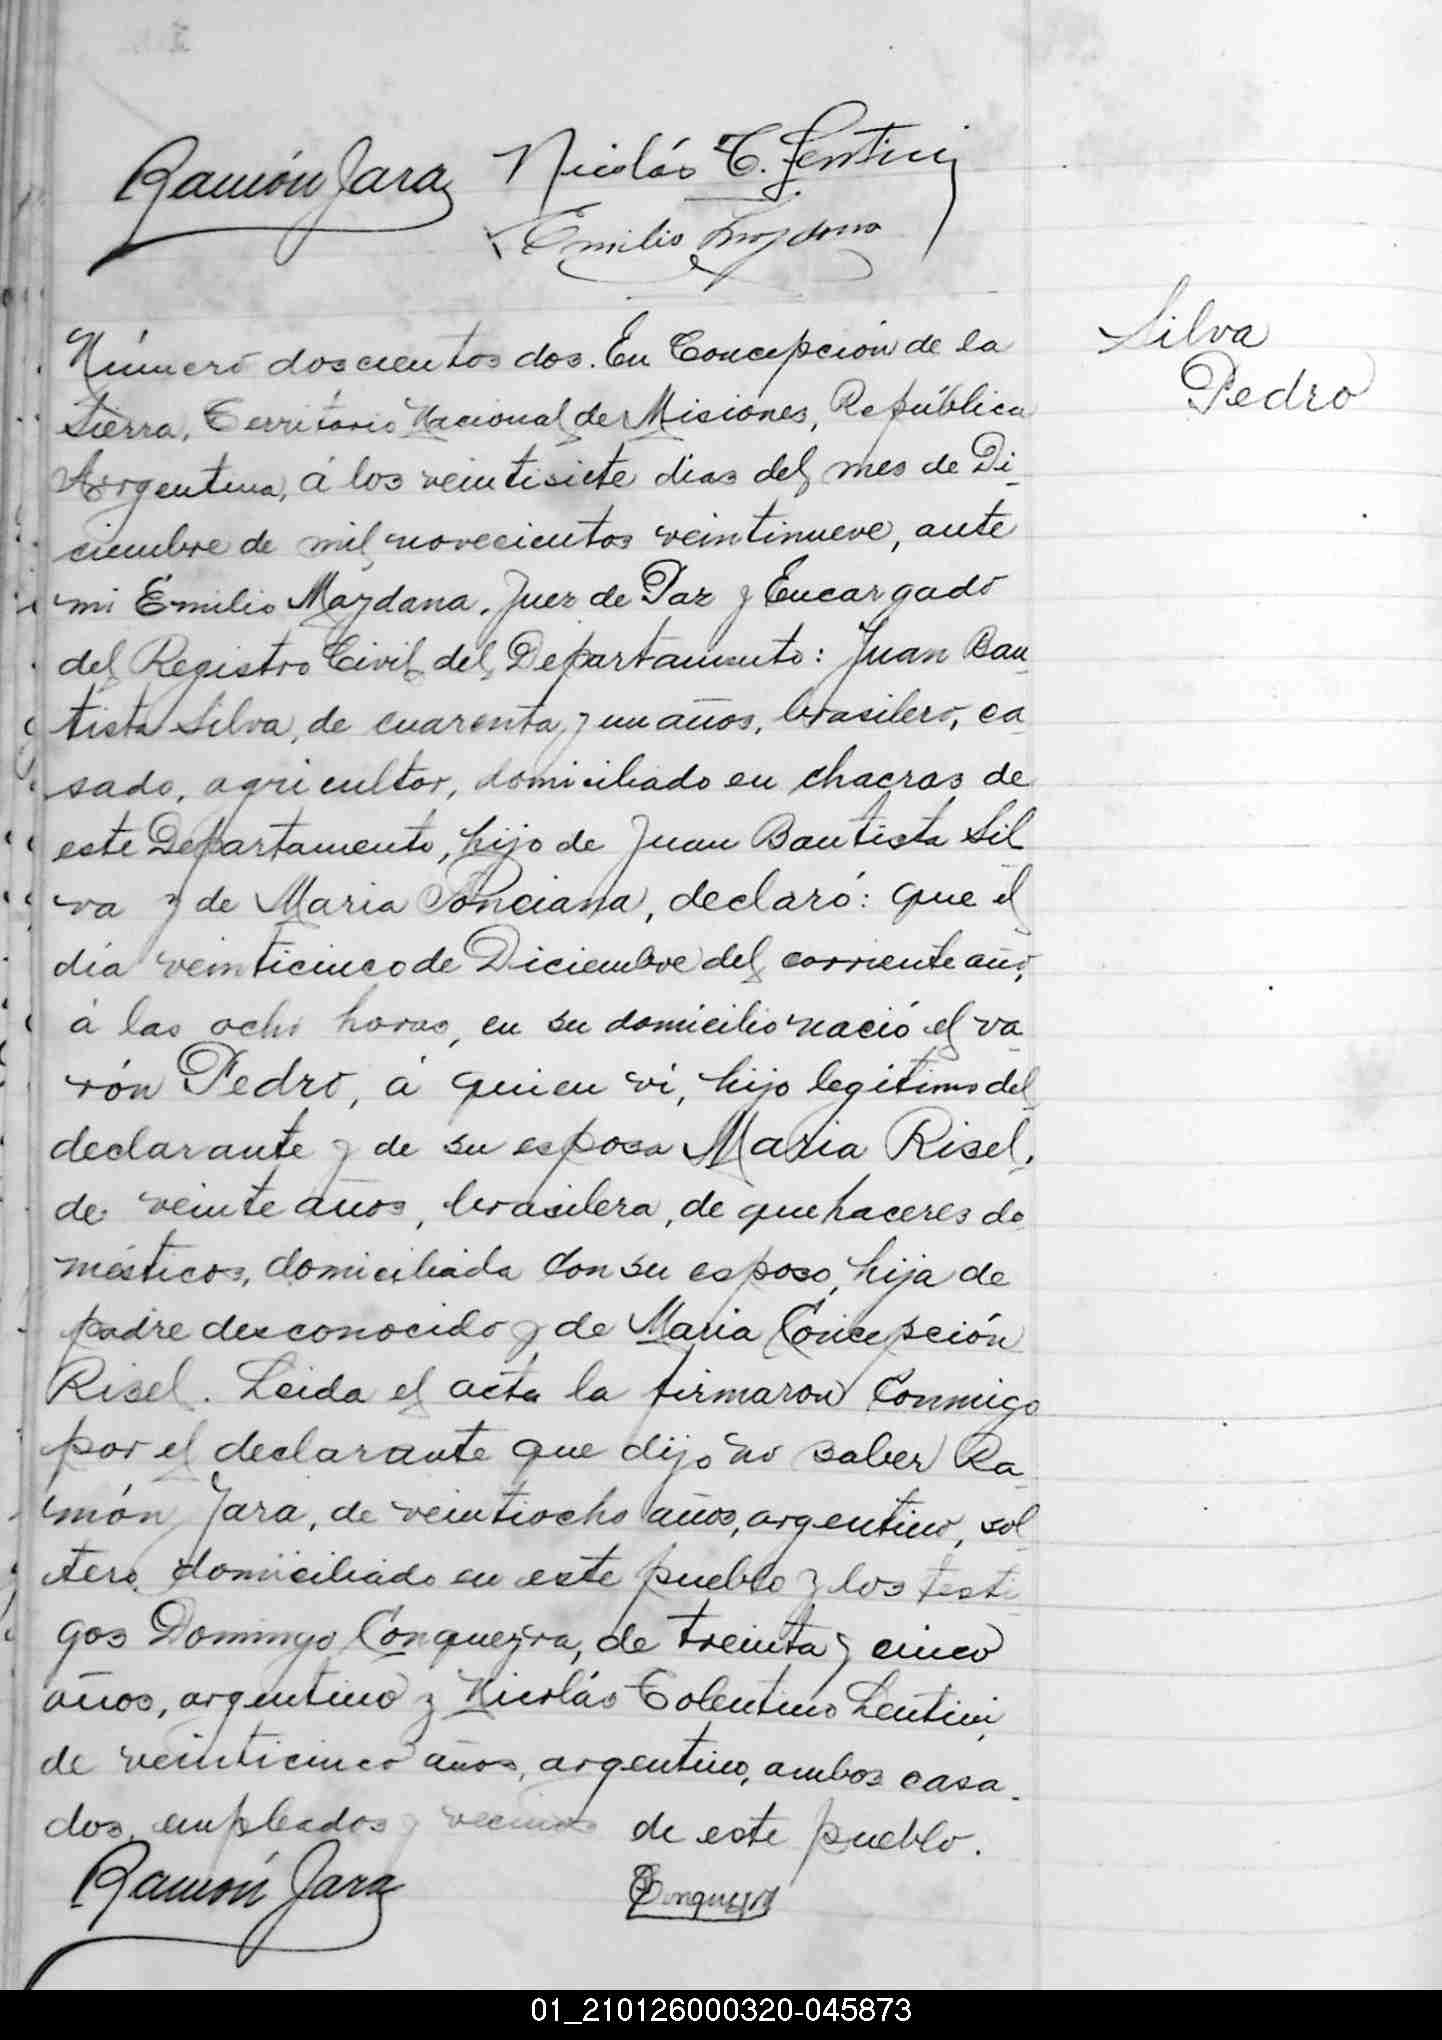 Ramón Jara Nicolás T. Lentini
Emilio Mazdana
Silva
Pedro
Número doscientos dos. En Concepción de la
Sierra, Territorio Nacional de Misiones, República
Argentina, á los veintisiete dias del mes de Di-
ciembre de mil novecientos veintinueve, ante
mi Emilio Mazdana, Juez de Paz y Encargado
del Registro Civil del Departamento: Juan Bau-
tista Silva, de cuarenta y un años, brasilero, ca-
sado, agricultor, domiciliado en chacras de
este Departamento, hijo de Juan Bautista Sil-
va y de Maria Ponciana, declaró: que el
día veinticinco de Diciembre del corriente año,
á las ocho horas, en su domicilio nació el va-
rón Pedro, á quien vi, hijo legitimo del
declarante y de su esposa Maria Risel,
de veinte años, brasilera, de quehaceres do-
mésticos, domiciliada con su esposo, hija de
padre desconocido y de Maria Concepción
Risel. Leida el acta la firmaron conmigo
por el declarante que dijo no saber Ra-
món Jara, de veintiocho años, argentino, sol-
tero, domiciliado en este pueblo y los testi-
gos Domingo Conquezra, de treinta y cinco
años, argentino y Nicolás Tolentino Lentini,
de veinticinco años, argentino, ambos casa-
dos, empleados y vecinos de este pueblo.
Ramón Jara
01_210126000320-045873